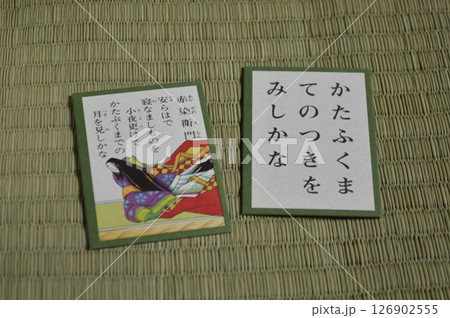 赤染衛門
安らはで
寝なましものを
小夜更けて
かたぶくまでの
月を見しかな
かたふくま
てのつきを
みしかな
pixta
126902555